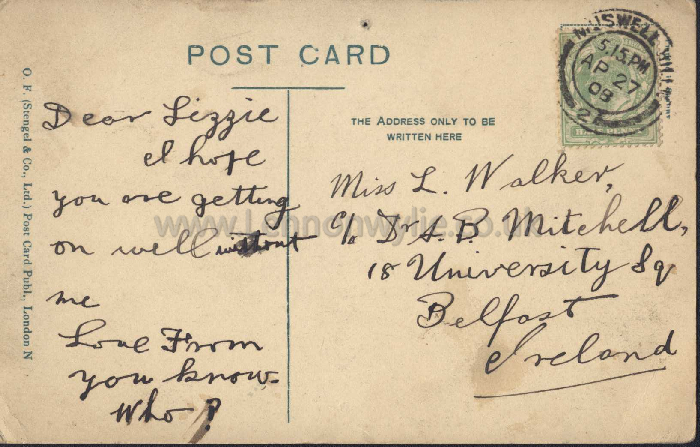 POST CARD
MUSWELL HILL
5.15.PM
AP 27
08
21
THE ADDRESS ONLY TO BE
WRITTEN HERE
O. F. (Stengel & Co., Ltd.) Post Card Publ., London N
Dear Lizzie
I hope
you are getting
on well without
me
Love From
you know
Who?
Miss L. Walker,
c/o Dr A. B. Mitchell,
18 University Sq
Belfast
Ireland
www.Lennonwylie.co.uk